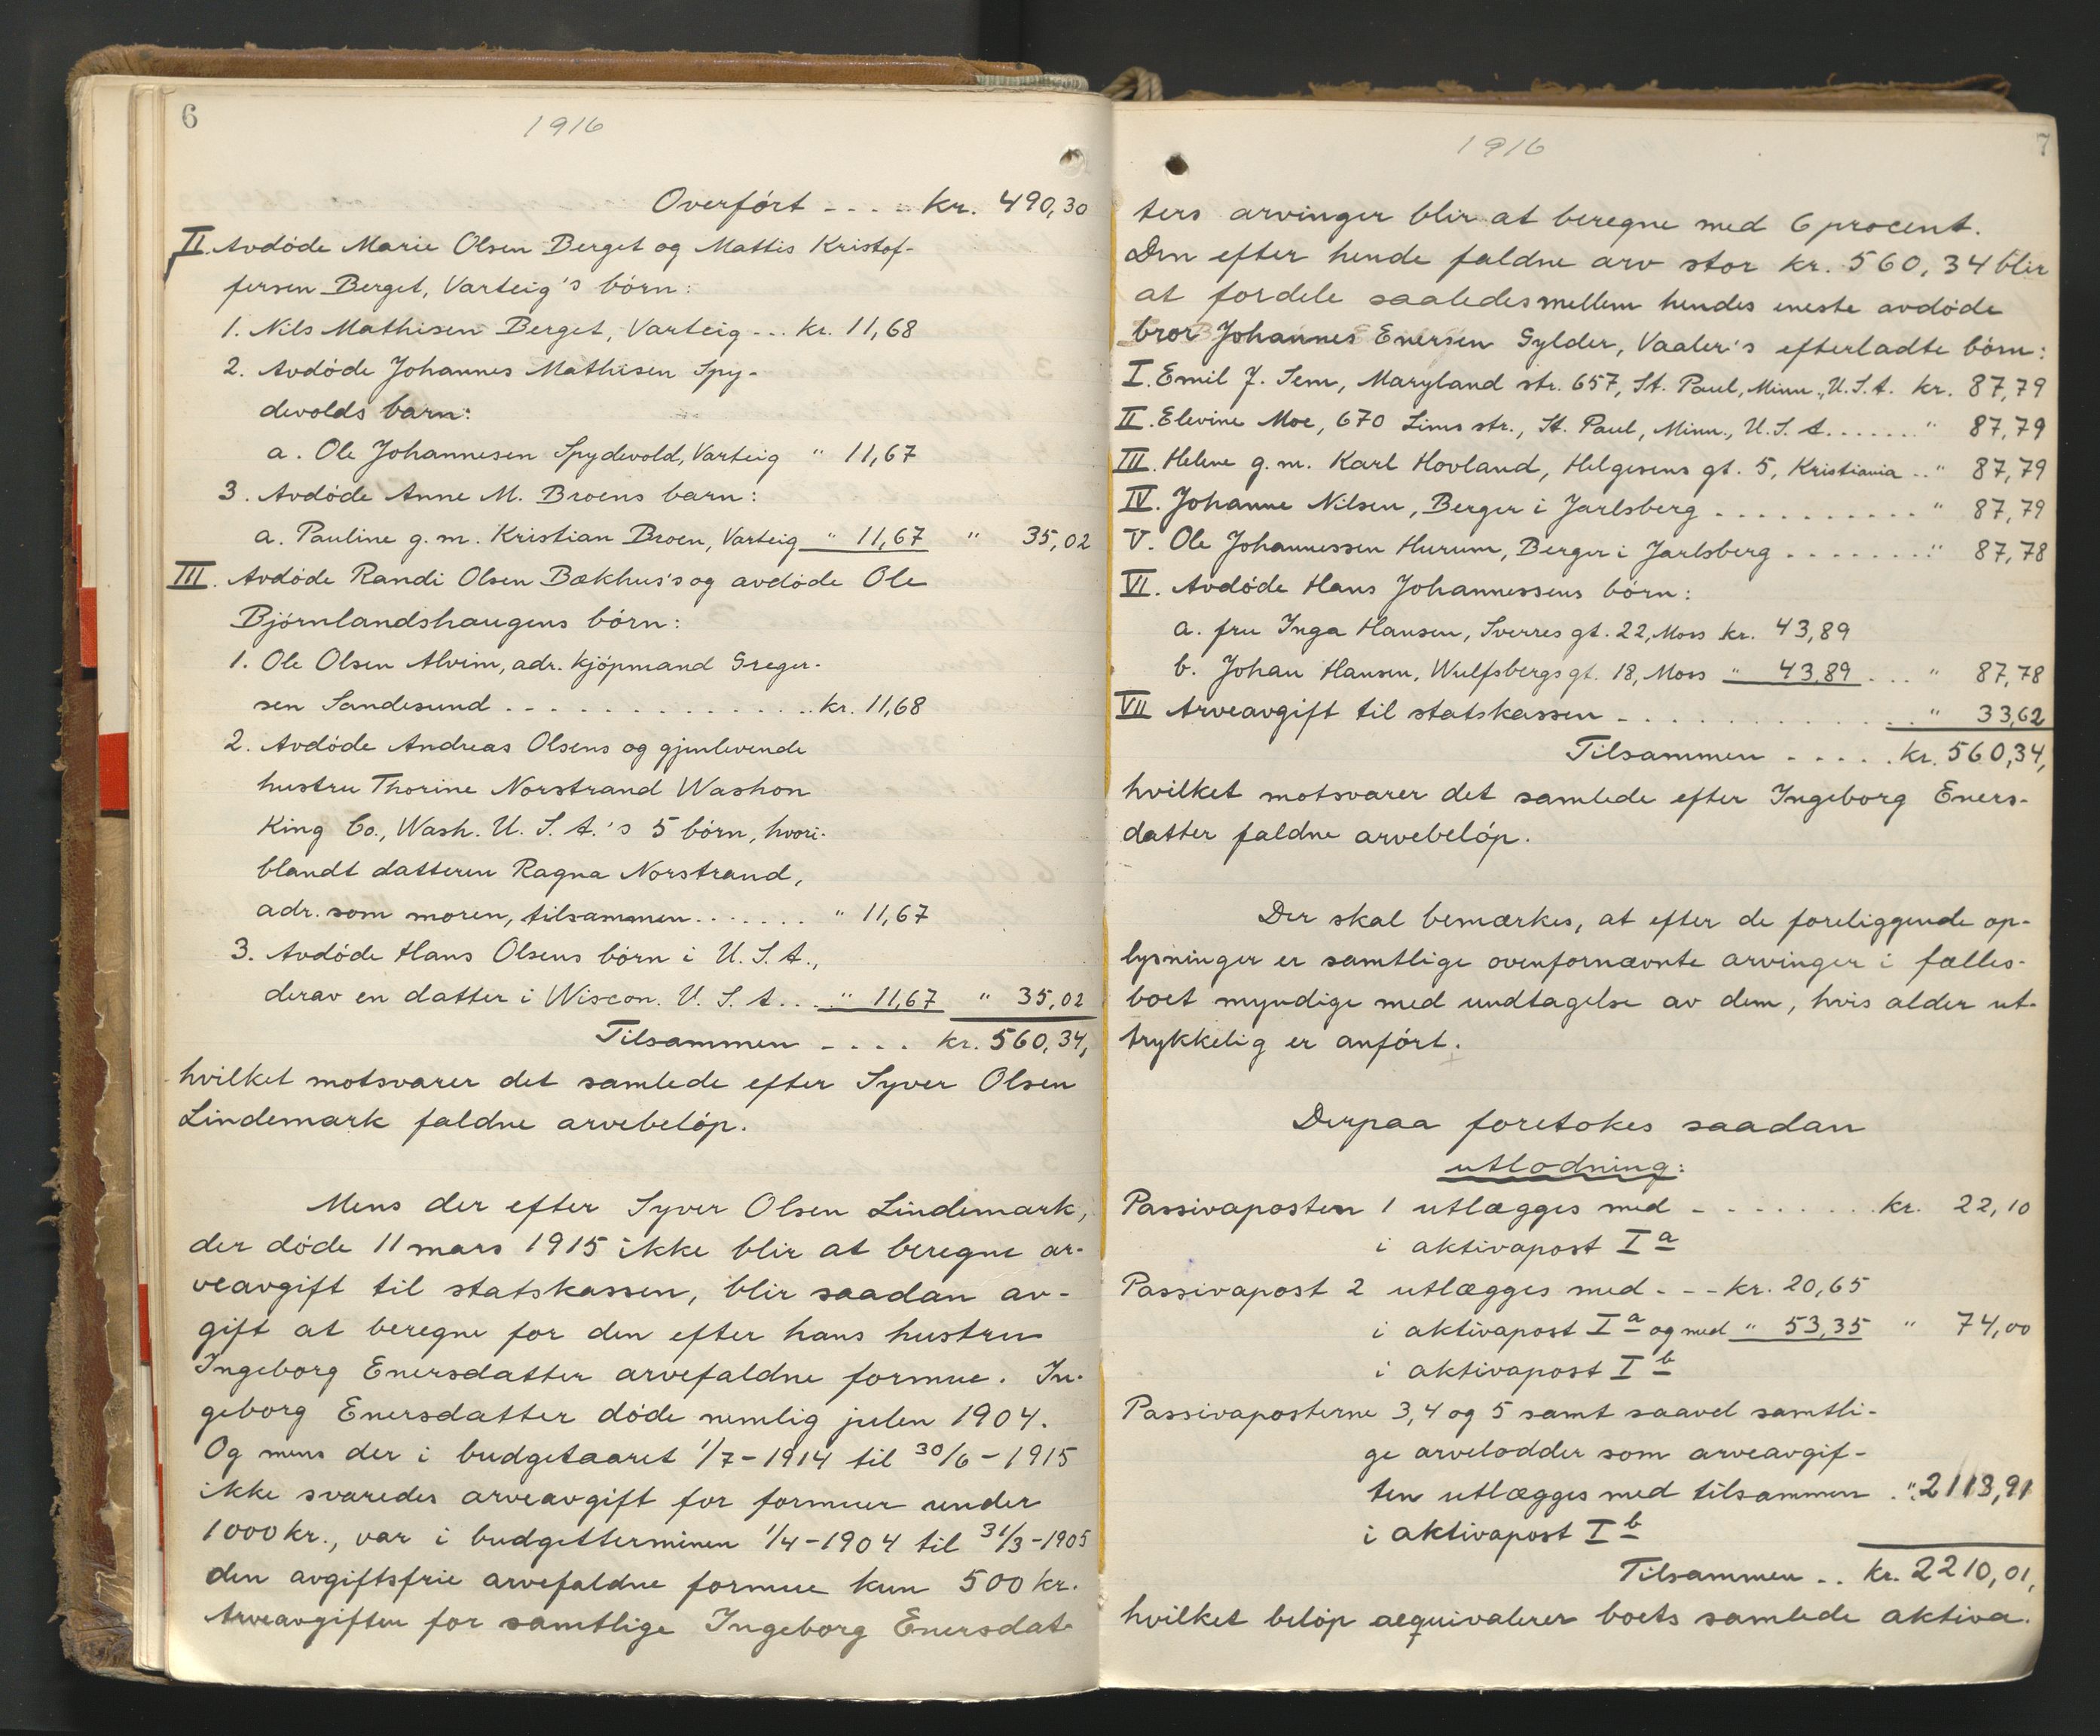 6
1916
Overført - - - - kr. 490,30
II. Avdøde Marie Olsen Berget og Mattis Kristof-
fersen Berget, Varteig's børn:
1. Nils Mathisen Berget, Varteig - - - kr. 11,68
2. Avdøde Johannes Mathisen Spy-
devolds barn:
a. Ole Johannesen Spydevold, Varteig " 11,67
3. Avdøde Anne M. Broens barn:
a. Pauline g. m. Kristian Broen, Varteig " 11,67 " 35,02
III. Avdøde Randi Olsen Bækhus's og avdøde Ole
Bjørnlandshaugens børn:
1. Ole Olsen Alvim, adr. kjøpmand Greger-
sen Sandesund . . . . . . . . . . . . . . kr. 11,68
2. Avdøde Andreas Olsens og gjenlevende
hustru Thorine Norstrand Washon
King Co., Wash. U. S. A.'s 5 børn, hvori-
blandt datteren Ragna Norstrand,
adr. som moren, tilsammen . . . . . . . " 11,67
3. Avdøde Hans Olsens børn i U. S. A.,
derav en datter i Wiscon. U. S. A. . . " 11,67 " 35,02
Tilsammen - - - - kr. 560,34,
hvilket motsvarer det samlede efter Syver Olsen
Lindemark faldne arvebeløp.
Mens der efter Syver Olsen Lindemark,
der døde 11 mars 1915 ikke blir at beregne ar-
veavgift til statskassen, blir saadan av-
gift at beregne for den efter hans hustru
Ingeborg Enersdatter arvefaldne formue. In-
geborg Enersdatter døde nemlig julen 1904.
Og mens der i budgetaaret 1/7-1914 til 30/6-1915
ikke svaredes arveavgift for formuer under
1000 kr., var i budgetterminen 1/4-1904 til 31/3-1905
den avgiftsfrie arvefaldne formue kun 500 kr.
Arveavgiften for samtlige Ingeborg Enersdat-
7
1916
ters arvinger blir at beregne med 6 procent.
Den efter hende faldne arv stor kr. 560,34 blir
at fordele saaledes mellem hendes eneste avdøde
bror Johannes Enersen Gylder, Vaaler's efterladte børn:
I. Emil J. Sem, Maryland str. 657, St. Paul, Minn., U.S.A. kr. 87,79
II. Elevine Moe, 670 Lims str., St. Paul, Minn., U. S. A. . . . . . . " 87,79
III. Helene g. m. Karl Hovland, Helgesens gt. 5, Kristiania . . " 87,79
IV. Johanne Nilsen, Berger i Jarlsberg . . . . . . . . . . " 87,79
V. Ole Johannessen Hurum, Berger i Jarlsberg . . . . . . . " 87,78
VI. Avdøde Hans Johannessens børn:
a. fru Inga Hansen, Sverres gt. 22, Moss kr. 43,89
b. Johan Hansen, Wulfsbergs gt. 18, Moss " 43,89 . . . " 87,78
VII Arveavgift til statskassen - . . . . . . . . . . . . . " 33,62
Tilsammen - . . . . kr. 560,34,
hvilket motsvarer det samlede efter Ingeborg Eners-
datter faldne arvebeløp.
Der skal bemærkes, at efter de foreliggende op-
lysninger er samtlige ovenfornævnte arvinger i fælles-
boet myndige med undtagelse av dem, hvis alder ut-
trykkelig er anført.
Derpaa foretokes saadan
utlodning:
Passivaposten 1 utlægges med - . . . . . . . kr. 22,10
i aktivapost I a
Passivapost 2 utlægges med - - - kr. 20,65
i aktivapost I a og med " 53,35 " 74,00
i aktivapost I b
Passivaposterne 3, 4 og 5 samt saavel samtli-
ge arvelodder som arveavgif-
ten utlægges med tilsammen . " 2113,91
i aktivapost I b
Tilsammen . . kr. 2210,01,
hvilket beløp aequivalerer boets samlede aktiva.